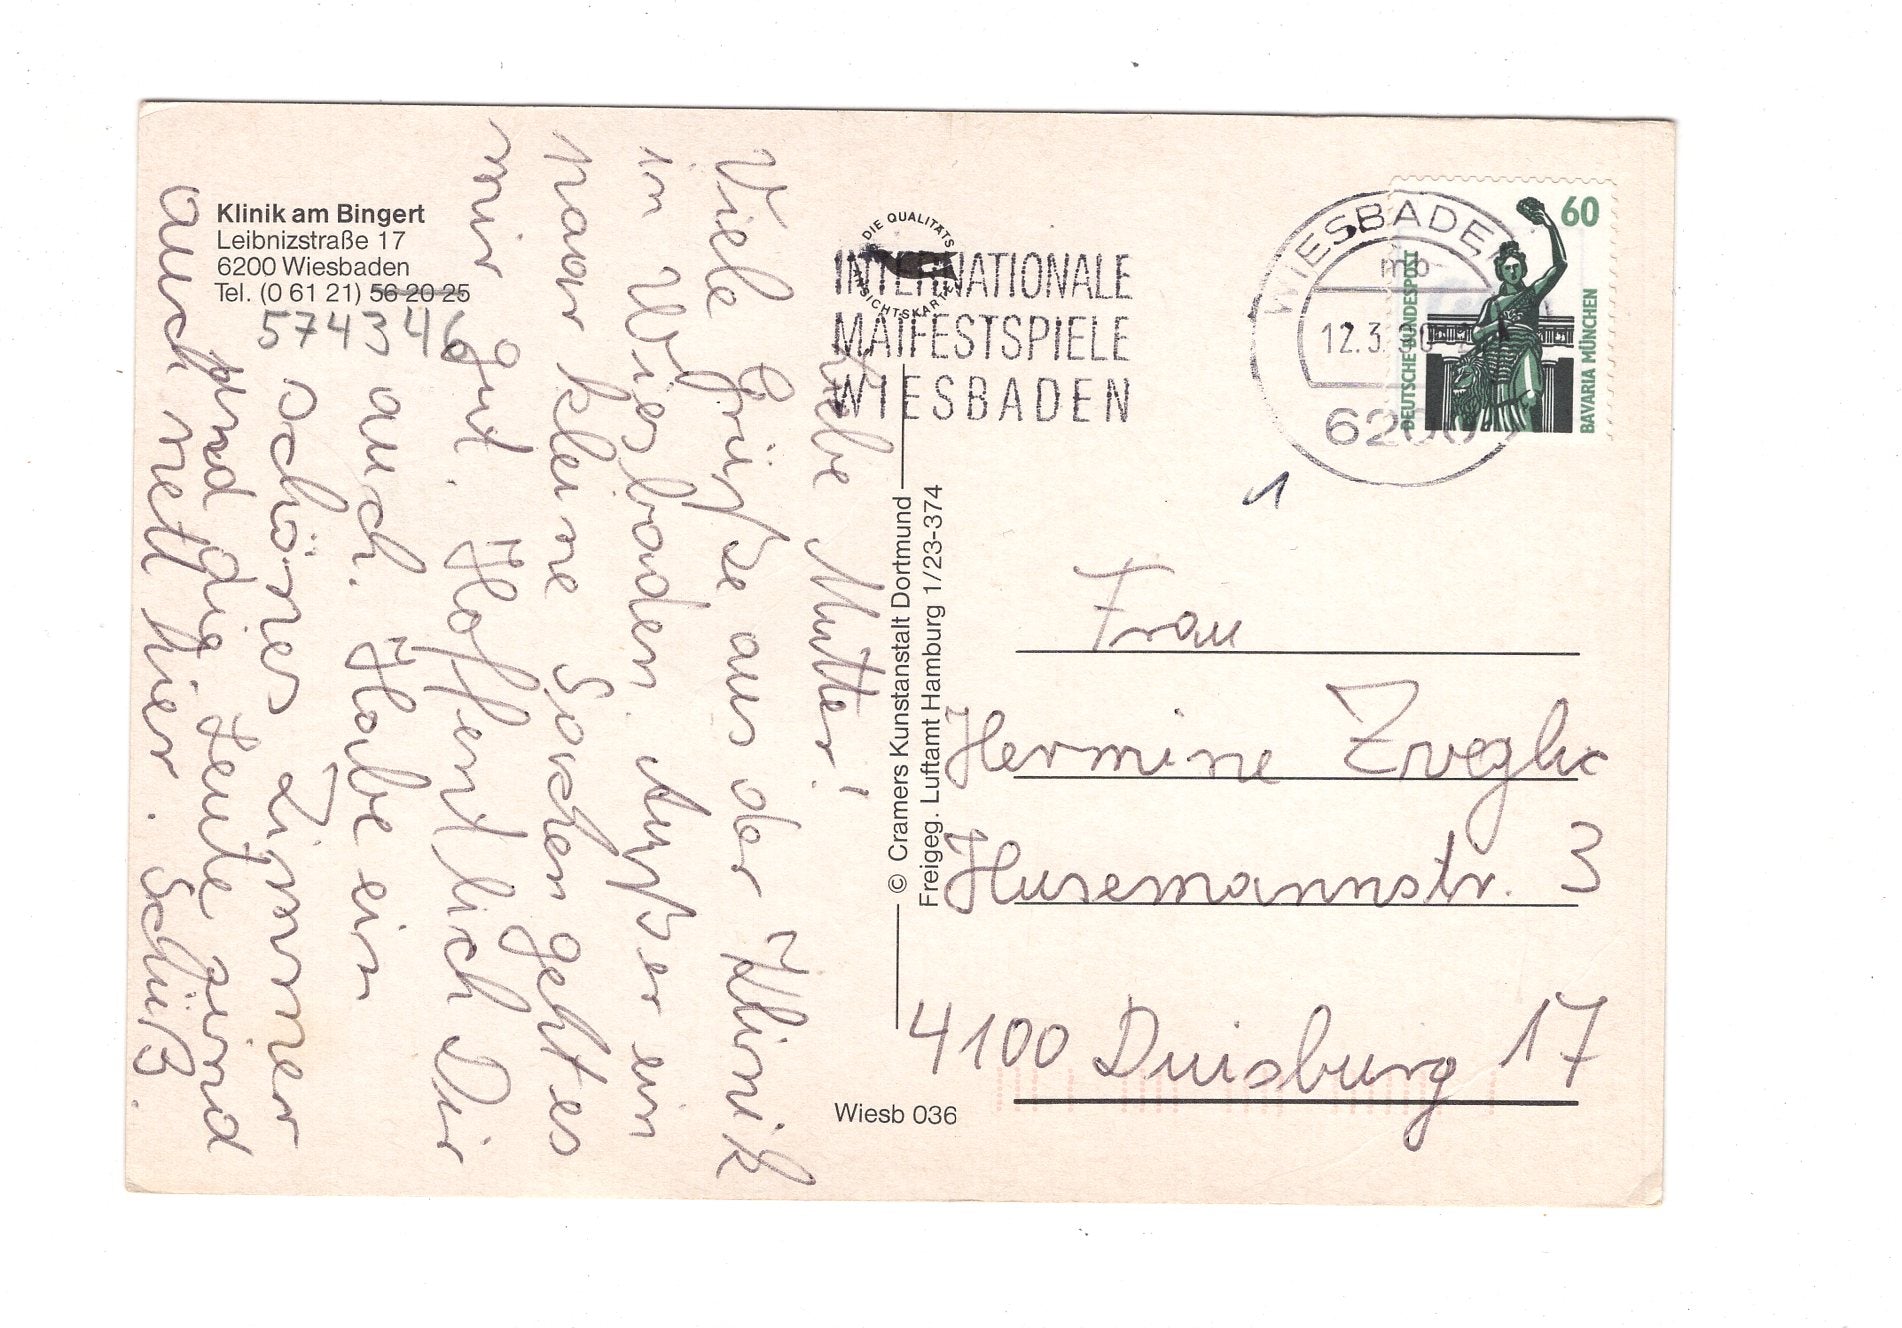 Klinik am Bingert
Leibnizstraße 17
6200 Wiesbaden
Tel. (0 61 21) 56 20 25
574346
Liebe Mutter!
Viele Grüße aus der Klinik
in Wiesbaden. Außer ein
paar kleine Sachen geht es
mir gut. Hoffentlich Dir
auch. Habe ein
schönes Zimmer
und die Leute sind
auch nett hier. Schüß.
DIE QUALITÄTS
ANSICHTSKARTE
INTERNATIONALE
MAIFESTSPIELE
WIESBADEN
© Cramers Kunstanstalt Dortmund
Freigeg. Luftamt Hamburg 1/23-374
Wiesb 036
WIESBADEN
mb
12.3.
6200
60
DEUTSCHE BUNDESPOST
BAVARIA MÜNCHEN
1
Frau
Hermine
Husemannstr. 3
4100 Duisburg 17